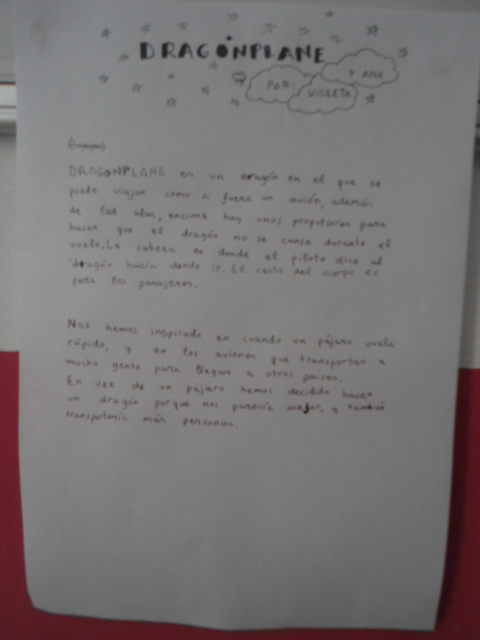 DRAGÓNPLANE
POR:
VIOLETA
Y ANA
DRAGONPLANE es un dragón en el que se
puede viajar como si fuera un avión, además
de las alas, encima hay unos propulsores para
hacer que el dragón no se canse durante el
vuelo. La cabeza es donde el piloto dice al
dragón hacia donde ir. El resto del cuerpo es
para los pasajeros.
Nos hemos inspirado en cuando un pájaro vuela
rápido, y en los aviones que transportan a
mucha gente para llegar a otros países.
En vez de un pájaro hemos decidido hacer
un dragón porque nos parecía mejor, y también
transportaría más personas.